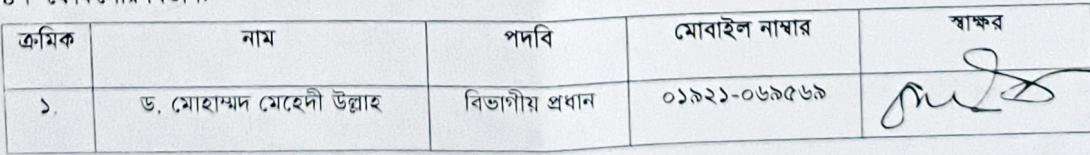 ক্রমিক নাম পদবি মোবাইল নাম্বার স্বাক্ষর
১. ড. মোহাম্মদ মেহেদী উল্লাহ বিভাগীয় প্রধান ০১৯২১-০৬৯৫৬৯